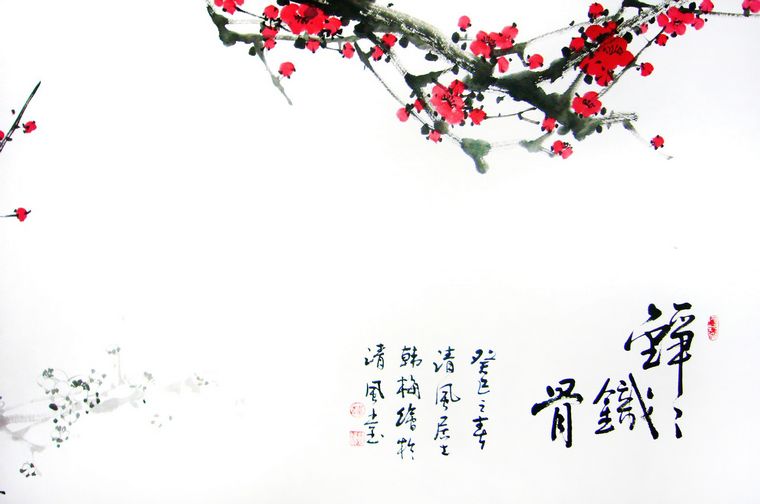 錚〻
鐵
骨
癸巳之春
清風居士
韩梅繪於
清風堂